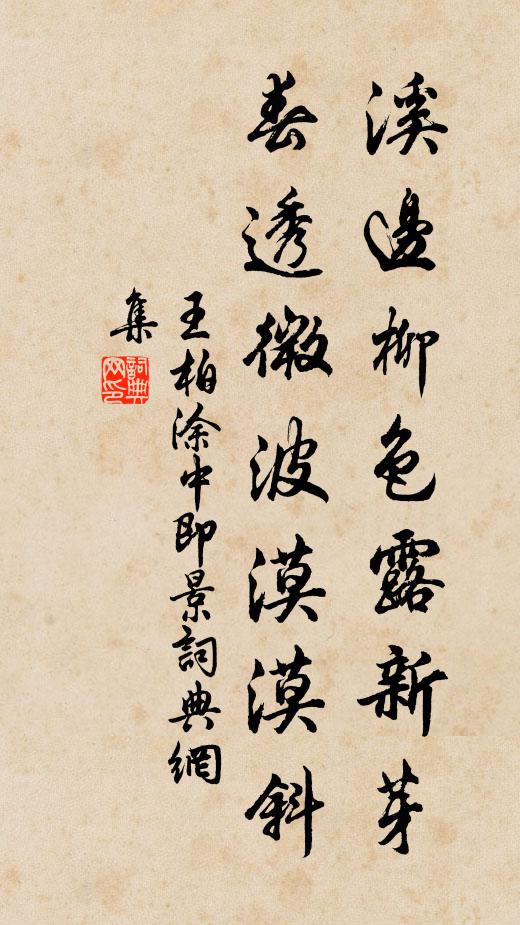 溪邊柳色露新芽
春透微波漠漠斜
王柏涂中即景詞典網
集
詞典網印